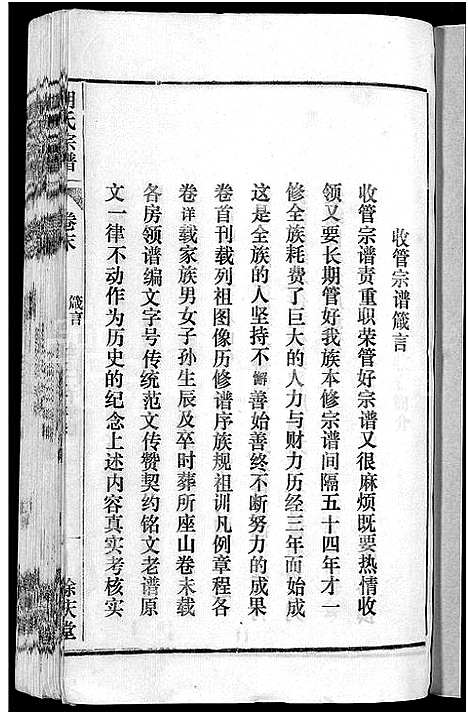 收管宗谱箴言
收管宗谱责重职荣管好宗谱又很麻烦既要热情收
领又要长期管好我族本修宗谱间隔五十四年才一
修全族耗费了巨大的人力与财力历经三年而始成
这是全族的人坚持不懈善始善终不断努力的成果
卷首刊载列祖图像历修谱序族规祖训凡例章程各
卷详载家族男女子孙生辰及卒时葬所座山卷末载
各房领谱编文字号传统范文传赞契约铭文老谱原
文一律不动作为历史的纪念上述内容真实考核实
氏宗谱
卷末
箴言
庆堂